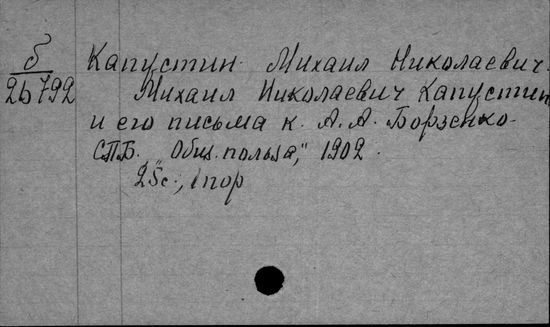 б Капустин Михаил Николаевич.
26792 Михаил Николаевич Капустин
и его письма к А. А. Борзенко.
СПБ, „Общ. польза", 1902.
25с., 1 пор